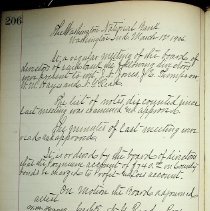 206
The Washington National Bank
Washington Ind. March 12th 1906
At a regular meeting of the board of
directors of said bank the following directors
were present to wit: J. F. Jones, J. C. Thompson
The list of notes discounted since
last meeting was examined and approved.
The minutes of last meeting were
read and approved.
It is ordered by the board of directors
that the premium account of $940.00 in County
bonds be charged to Profit and loss account.
On motion the Board adjourned